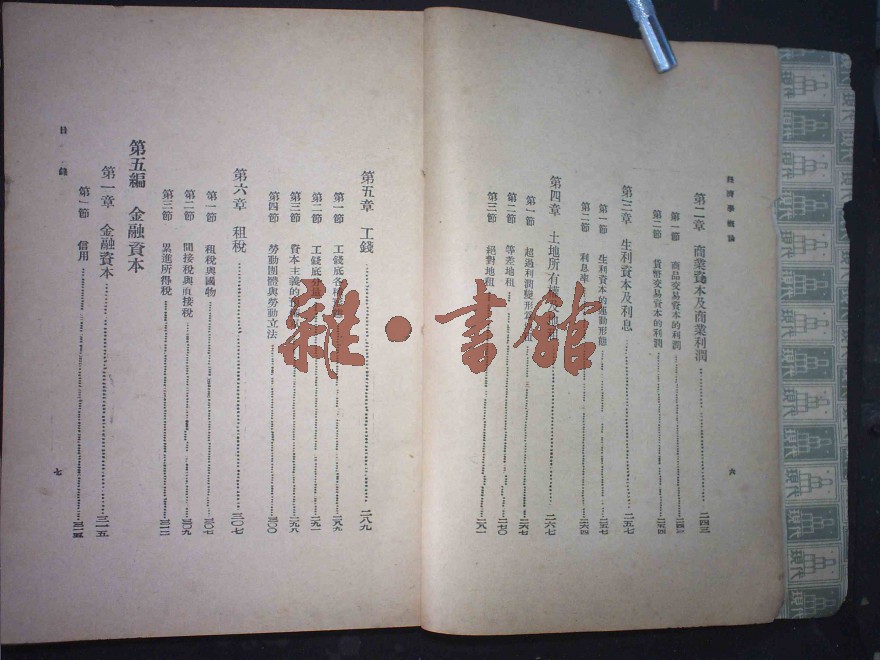 經濟學概論
第二章 商業資本及商業利潤 二四三
第一節 商品交易資本的利潤 二四三
第二節 貨幣交易資本的利潤 二五四
第三章 生利資本及利息 二五七
第一節 生利資本的運動形態 二五七
第二節 利息率 二六四
第四章 土地所有權及地租 二六七
第一節 超過利潤變形為地租 二六七
第二節 等差地租 二七〇
第三節 絕對地租 二八一
六
第五章 工錢 二八九
第一節 工錢底各種 二八九
第二節 工錢底 二九一
第三節 資本主義的 二九八
第四節 勞動團體與勞動立法 三〇〇
第六章 租稅 三〇七
第一節 租稅與國物 三〇七
第二節 間接稅與直接稅 三〇九
第三節 累進所得稅 三一二
第五編 金融資本
第一章 金融資本 三一五
第一節 信用 三一五
目錄
七
雜·書館
現代